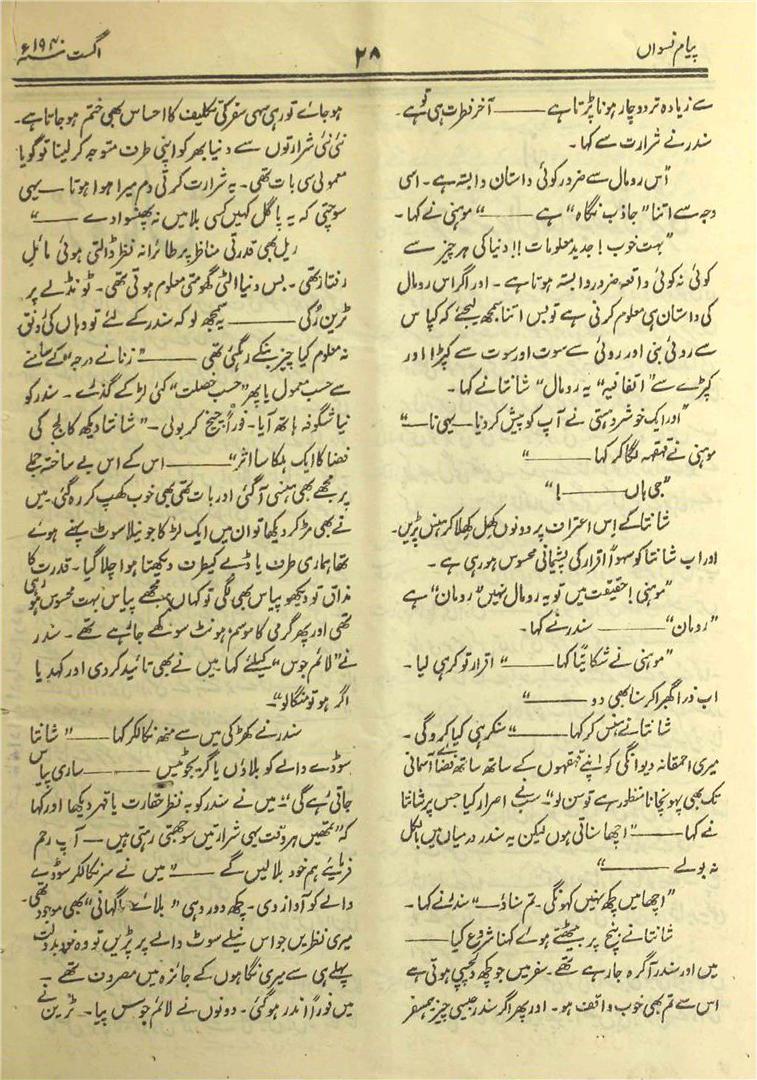 پیام نسواں
۲۸
اگست ۱۹۴۰ء
سے زیادہ تر دوچار ہونا پڑتا ہے ——— آخر فطرت ہی تو ہے۔
سندر نے شرارت سے کہا۔
"اس رومال سے ضرور کوئی داستان وابستہ ہے۔ اسی
وجہ سے اتنا "جاذب نگاہ" ہے ———" موہنی نے کہا۔
"بہت خوب! جدید معلومات!! دنیا کی ہر چیز سے
کوئی نہ کوئی واقعہ ضرور وابستہ ہوتا ہے۔ اور اگر اس رومال
کی داستان ہی معلوم کرنی ہے تو بس اتنا سمجھ لیجئے کہ کپاس
سے روئی بنی اور روئی سے سوت اور سوت سے کپڑا اور
کپڑے سے "اتفاقیہ" یہ رومال" شانتا نے کہا۔
"اور ایک خوشرو ہستی نے آپ کو پیش کر دیا ـــ یہی نا ـــ"
موہنی نے قہقہہ لگا کر کہا ———"
"جی ہاں ———!"
شانتا کے اس اعتراف پر دونوں کھل کھلا کر ہنس پڑیں۔
اور اب شانتا کو سہواً اقرار کی پشیمانی محسوس ہو رہی ہے۔
"موہنی! حقیقت میں تو یہ رومال نہیں "رومان" ہے
"رومان" ——— سندر نے کہا۔
"موہنی نے شکایتاً کہا ———" اقرار تو کر ہی لیا۔
اب ذرا گھبرا کر سنا بھی دو ———"
شانتا نے ہنس کر کہا ———" سنکر ہی کیا کرو گی۔
میری احمقانہ دیوانگی کو اپنے قہقہوں کے ساتھ ساتھ فضائے آسمانی
تک بھی پہونچانا منظور ہے تو سن لو" سب نے اصرار کیا جس پر شانتا
نے کہا ———" اچھا سناتی ہوں لیکن یہ سندر درمیاں میں بالکل
نہ بولے ———"
"اچھا میں کچھ نہیں کہونگی۔ تم سناؤ ـــ" سندر نے کہا۔
شانتا نے پنچ پر بیٹھتے ہوئے کہنا شروع کیا ———
میں اور سندر آگرہ جا رہے تھے۔ سفر میں جو کچھ دلچسپی ہوتی ہے
اس سے تم بھی خوب واقف ہو۔ اور پھر اگر سندر جیسی چیز ہمسفر
ہو جائے تو رہی سہی سفر کی تکلیف کا احساس بھی ختم ہو جاتا ہے۔
نئی نئی شرارتوں سے دنیا بھر کو اپنی طرف متوجہ کر لینا تو گویا
معمولی سی بات تھی۔ یہ شرارت کرتی دم میرا ہوا ہوتا ـــ یہی
سوچتی کہ یہ پاگل کہیں کسی بلا میں نہ پھنسوا دے ———"
ریل بھی قدرتی مناظر پر طائرانہ نظر ڈالتی ہوئی مائل
رفتار تھی۔ بس دنیا الٹی گھومتی معلوم ہوتی تھی۔ ٹونڈلے پر
ٹرین رُکی ——— سمجھ لو کہ سندر کے لئے تو وہاں کی رونق
نہ معلوم کیا چیز بنکے رہ گئی تھی ———" زنانے درجہ" کے سامنے
سے حسب معمول یا پھر "حسب خصلت" کئی لڑکے گذرے۔ سندر کو
نیا شگوفہ ہاتھ آیا۔ فوراً چیخ کر بولی۔" شانتا دیکھ کالج کی
فضا کا ایک ہلکا سا اثر" ——— اس کے اس بے ساختہ جملے
پر مجھے بھی ہنسی آ گئی اور بات تھی بھی خوب کھپ کر رہ گئی۔ میں
نے بھی مڑ کر دیکھا تو ان میں ایک لڑکا جو نیلا سوٹ پہنے ہوئے
تھا ہماری طرف یا ڈبے کیطرف دیکھتا ہوا چلا گیا۔ قدرت کا
مذاق تو دیکھو پیاس بھی لگی تو کہاں مجھے پیاس بہت محسوس ہو رہی
تھی اور پھر گرمی کا موسم ہونٹ سوکھے جا رہے تھے۔ سندر
نے "لائم جوس" کیلئے کہا میں نے بھی تائید کر دی اور کہدیا
اگر ہو تو منگا لو"۔
سندر نے کھڑکی میں سے منھ نکالکر کہا ———" شانتا
سوڈے والے کو بلاؤں یا گریجوئیٹ میں ——— ساری پیاس
جاتی رہے گی" میں نے سندر کو بہ نظر حقارت یا قہر دیکھا اور کہا
کہ "تمہیں ہر وقت یہی شرارتیں سوجھتی رہتی ہیں ـــ آپ رحم
فرمایئے ہم خود بلا لیں گے ———" میں نے سر نکالکر سوڈے
والے کو آواز دی۔ کچھ دور وہی "بلائے ناگہانی" بھی موجود تھی۔
میری نظریں جو اس نیلے سوٹ والے پر پڑیں تو وہ خود بدولت
پہلے ہی سے میری نگاہوں کے جائزہ میں مصروف تھے۔
میں فوراً اندر ہو گئی۔ دونوں نے لائم جوس پیا۔ ٹرین نے